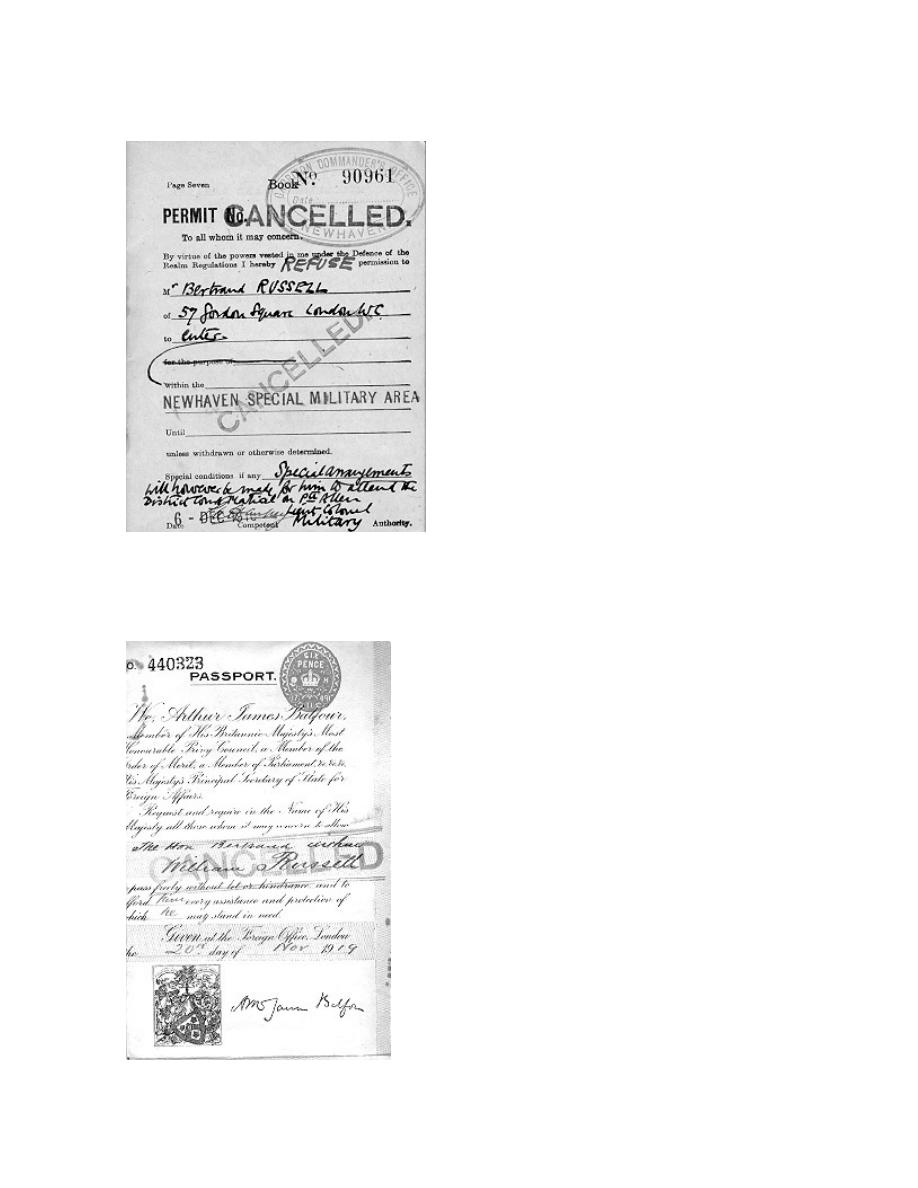 GARRISON COMMANDER'S OFFICE
Date
NEWHAVEN
Page Seven Book No. 90961
PERMIT No. CANCELLED.
To all whom it may concern.
By virtue of the powers vested in me under the Defence of the
Realm Regulations I hereby REFUSE permission to
Mr Bertrand RUSSELL
of 57 Gordon Square London WC
to enter
for the purpose of
CANCELLED.
within the
NEWHAVEN SPECIAL MILITARY AREA
Until
unless withdrawn or otherwise determined.
Special conditions if any Special arrangements
will however be made for him to attend the
District Court Martial on Pte Allen
Lieut Colonel
Date 6 - DEC Competent Military Authority.
o. 440323
SIX
PENCE
PASSPORT.
We, Arthur James Balfour,
Member of His Britannic Majesty's Most
Honourable Privy Council, a Member of the
Order of Merit, a Member of Parliament, &c. &c. &c.
His Majesty's Principal Secretary of State for
Foreign Affairs.
Request and require in the Name of His
Majesty all those whom it may concern to allow
The Hon Bertrand
CANCELLED
William Russell
pass freely without let or hindrance, and to
afford him every assistance and protection of
which he may stand in need.
Given at the Foreign Office, London
the 20th day of Nov 1919
Balfour